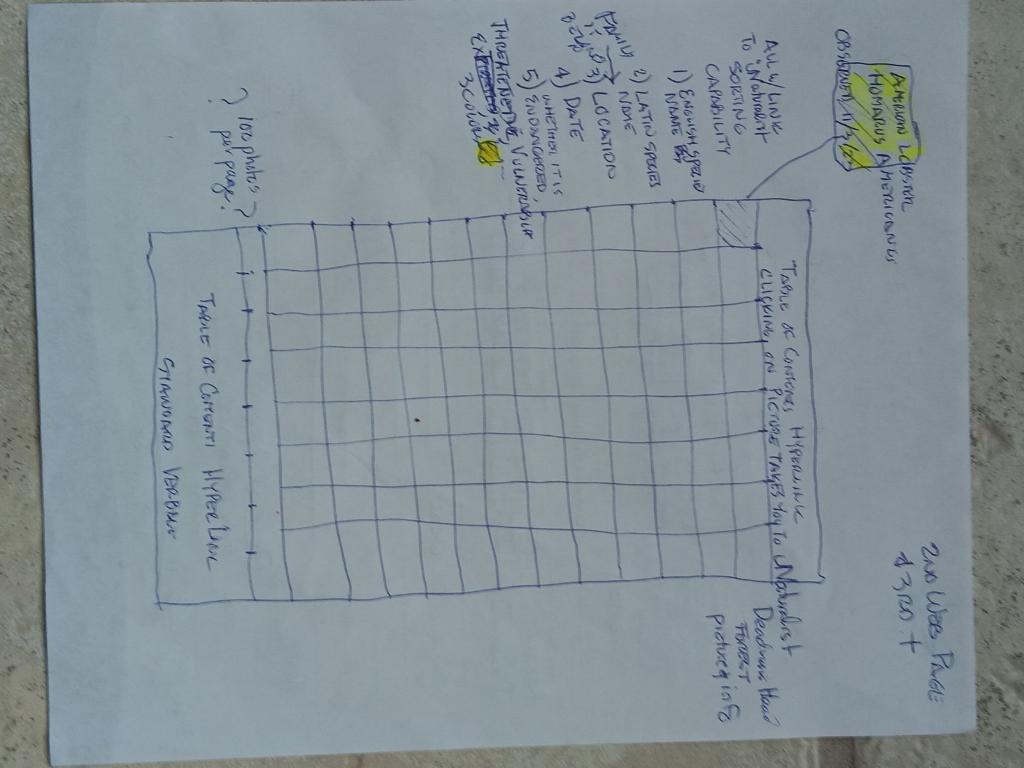 2ND WEB PAGE
& 3RD +
AMERICAN LOBSTER
HOMARUS AMERICANUS
OBSERVED 11/3/2
TABLE OF CONTENTS HYPERLINK
CLICKING ON PICTURE TAKES YOU TO iNaturalist
Deadman Head
FOREST
picture & info
ALL W/ LINK
TO iNaturalist
SORTING
CAPABILITY
1) ENGLISH SPECIES
NAME
2) LATIN SPECIES
NAME
FAMILY
IT
3) LOCATION
4) DATE
5) WHETHER IT IS
ENDANGERED,
THREATENED, VULNERABLE
3 COLOR
? 100 photos
per page?
TABLE OF CONTENT HYPERLINK
STANDARD VERBAGE